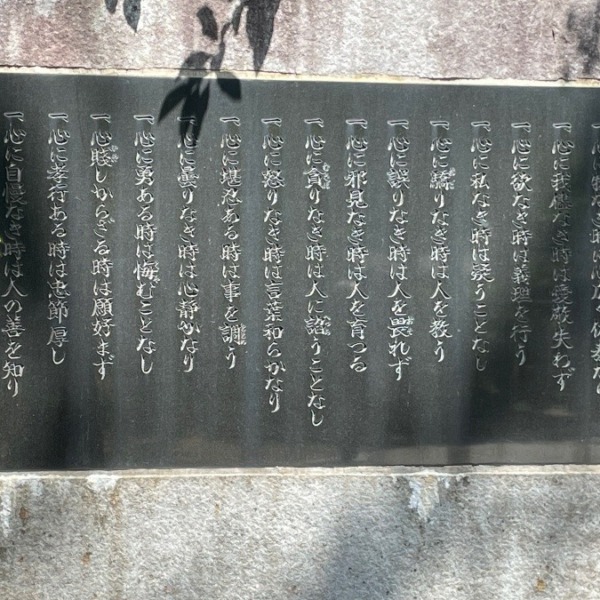 一心に物なき時は心広く体泰なり
一心に我慢なき時は愛敬失わず
一心に欲なき時は義理を行う
一心に私なき時は疑うことなし
一心に驕りなき時は人を教う
一心に誤りなき時は人を畏れず
一心に邪見なき時は人を育つる
一心に貪りなき時は人に諂うことなし
一心に怒りなき時は言葉和らかなり
一心に堪忍ある時は事を調う
一心に曇りなき時は心静かなり
一心に勇ある時は悔むことなし
一心賤しからざる時は願好まず
一心に孝行ある時は忠節厚し
一心に自慢なき時は人の善を知り